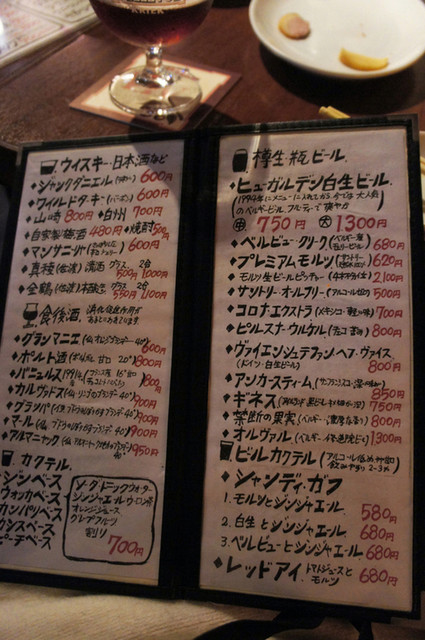 KRIEK
ウイスキー・日本酒など
・ジャックダニエル 600円
・ワイルドターキー(バーボン) 600円
・山崎 800円・白州 700円
・自家製梅酒 480円・焼酎 500円
・マンサニーリャ 600円
・真稜(佐渡)清酒 グラス 500円 2合 1000円
・金鶴(佐渡)本醸造 グラス 550円 2合 1100円
食後酒 消化促進作用が
あるといわれています
・グランマニエ 600円
・ポルト酒 20° 800円
・バニュルス 800円
・カルヴァドス 900円
・グラッパ 900円
・マール 900円
・アルマニャック 950円
カクテル
ジンベース
ウォッカベース
カンパリベース
カシスベース
ピーチベース
ソーダ・トニックウォーター
ジンジャエール・ウーロン茶
オレンジジュース
グレープフルーツ
割り
700円
樽生・瓶ビール
・ヒューガルデン白生ビール
中 750円 大 1300円
・ベルビュー・クリーク 680円
・プレミアムモルツ 620円
・モルツ生ビールピッチャー 2,100円
・サントリーオールフリー(アルコールゼロ) 500円
・コロナエクストラ 700円
・ピルスナーウルケル 800円
・ヴァイエンシュテファン ヘフ・ヴァイス
(ドイツ・白生ビール) 800円
・アンカースティーム 850円
・ギネス 750円
・禁断の果実 800円
・オルヴァル 1300円
ビールカクテル
・シャンディ・ガフ
1. モルツとジンジャエール 580円
2. 白生とジンジャエール 680円
3. ベルビューとジンジャエール 680円
・レッドアイ トマトジュースと
モルツ 680円